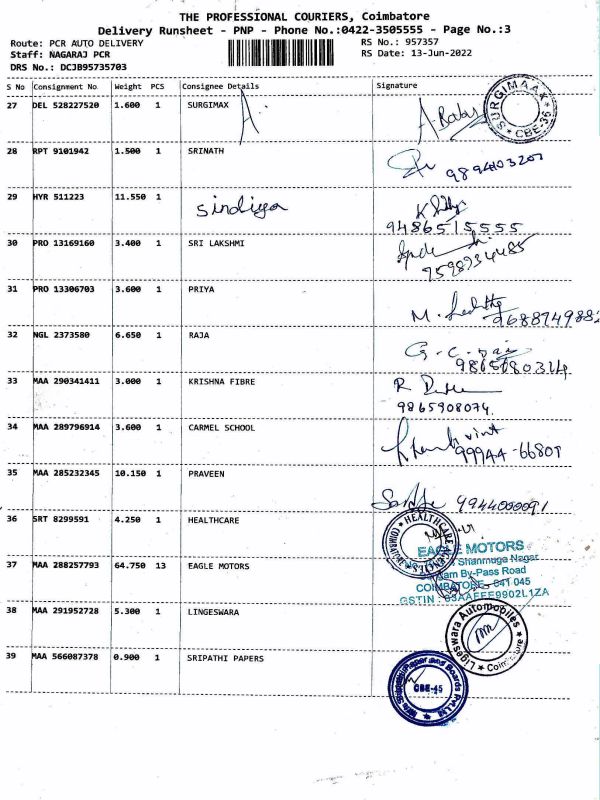 THE PROFESSIONAL COURIERS, Coimbatore
Delivery Runsheet - PNP - Phone No.:0422-3505555 - Page No.:3
Route: PCR AUTO DELIVERY
Staff: NAGARAJ PCR
DRS No.: DCJB95735703
RS No.: 957357
RS Date: 13-Jun-2022
S No Consignment No Weight PCS Consignee Details Signature
27 DEL 528227520 1.600 1 SURGIMAX
SURGIMAAX
CBE-36
28 RPT 9101942 1.500 1 SRINATH
9894103207
29 HYR 511223 11.550 1 Sindiya
9486515555
30 PRO 13169160 3.400 1 SRI LAKSHMI
7598734485
31 PRO 13306703 3.600 1 PRIYA
M.
32 NGL 2373580 6.650 1 RAJA
G.C.
33 MAA 290341411 3.000 1 KRISHNA FIBRE
R
9865908074
34 MAA 289796914 3.600 1 CARMEL SCHOOL
99944-66807
35 MAA 285232345 10.150 1 PRAVEEN
9944000091
36 SRT 8299591 4.250 1 HEALTHCARE
HEALTHCARE
37 MAA 288257793 64.750 13 EAGLE MOTORS
EAGLE MOTORS
Shanmuga Nagar
By-Pass Road
COIMBATORE - 641 045
GSTIN :
38 MAA 291952728 5.300 1 LINGESWARA
Ligeswara Automobiles
39 MAA 566087378 0.900 1 SRIPATHI PAPERS
Paper and Boards
CBE-45